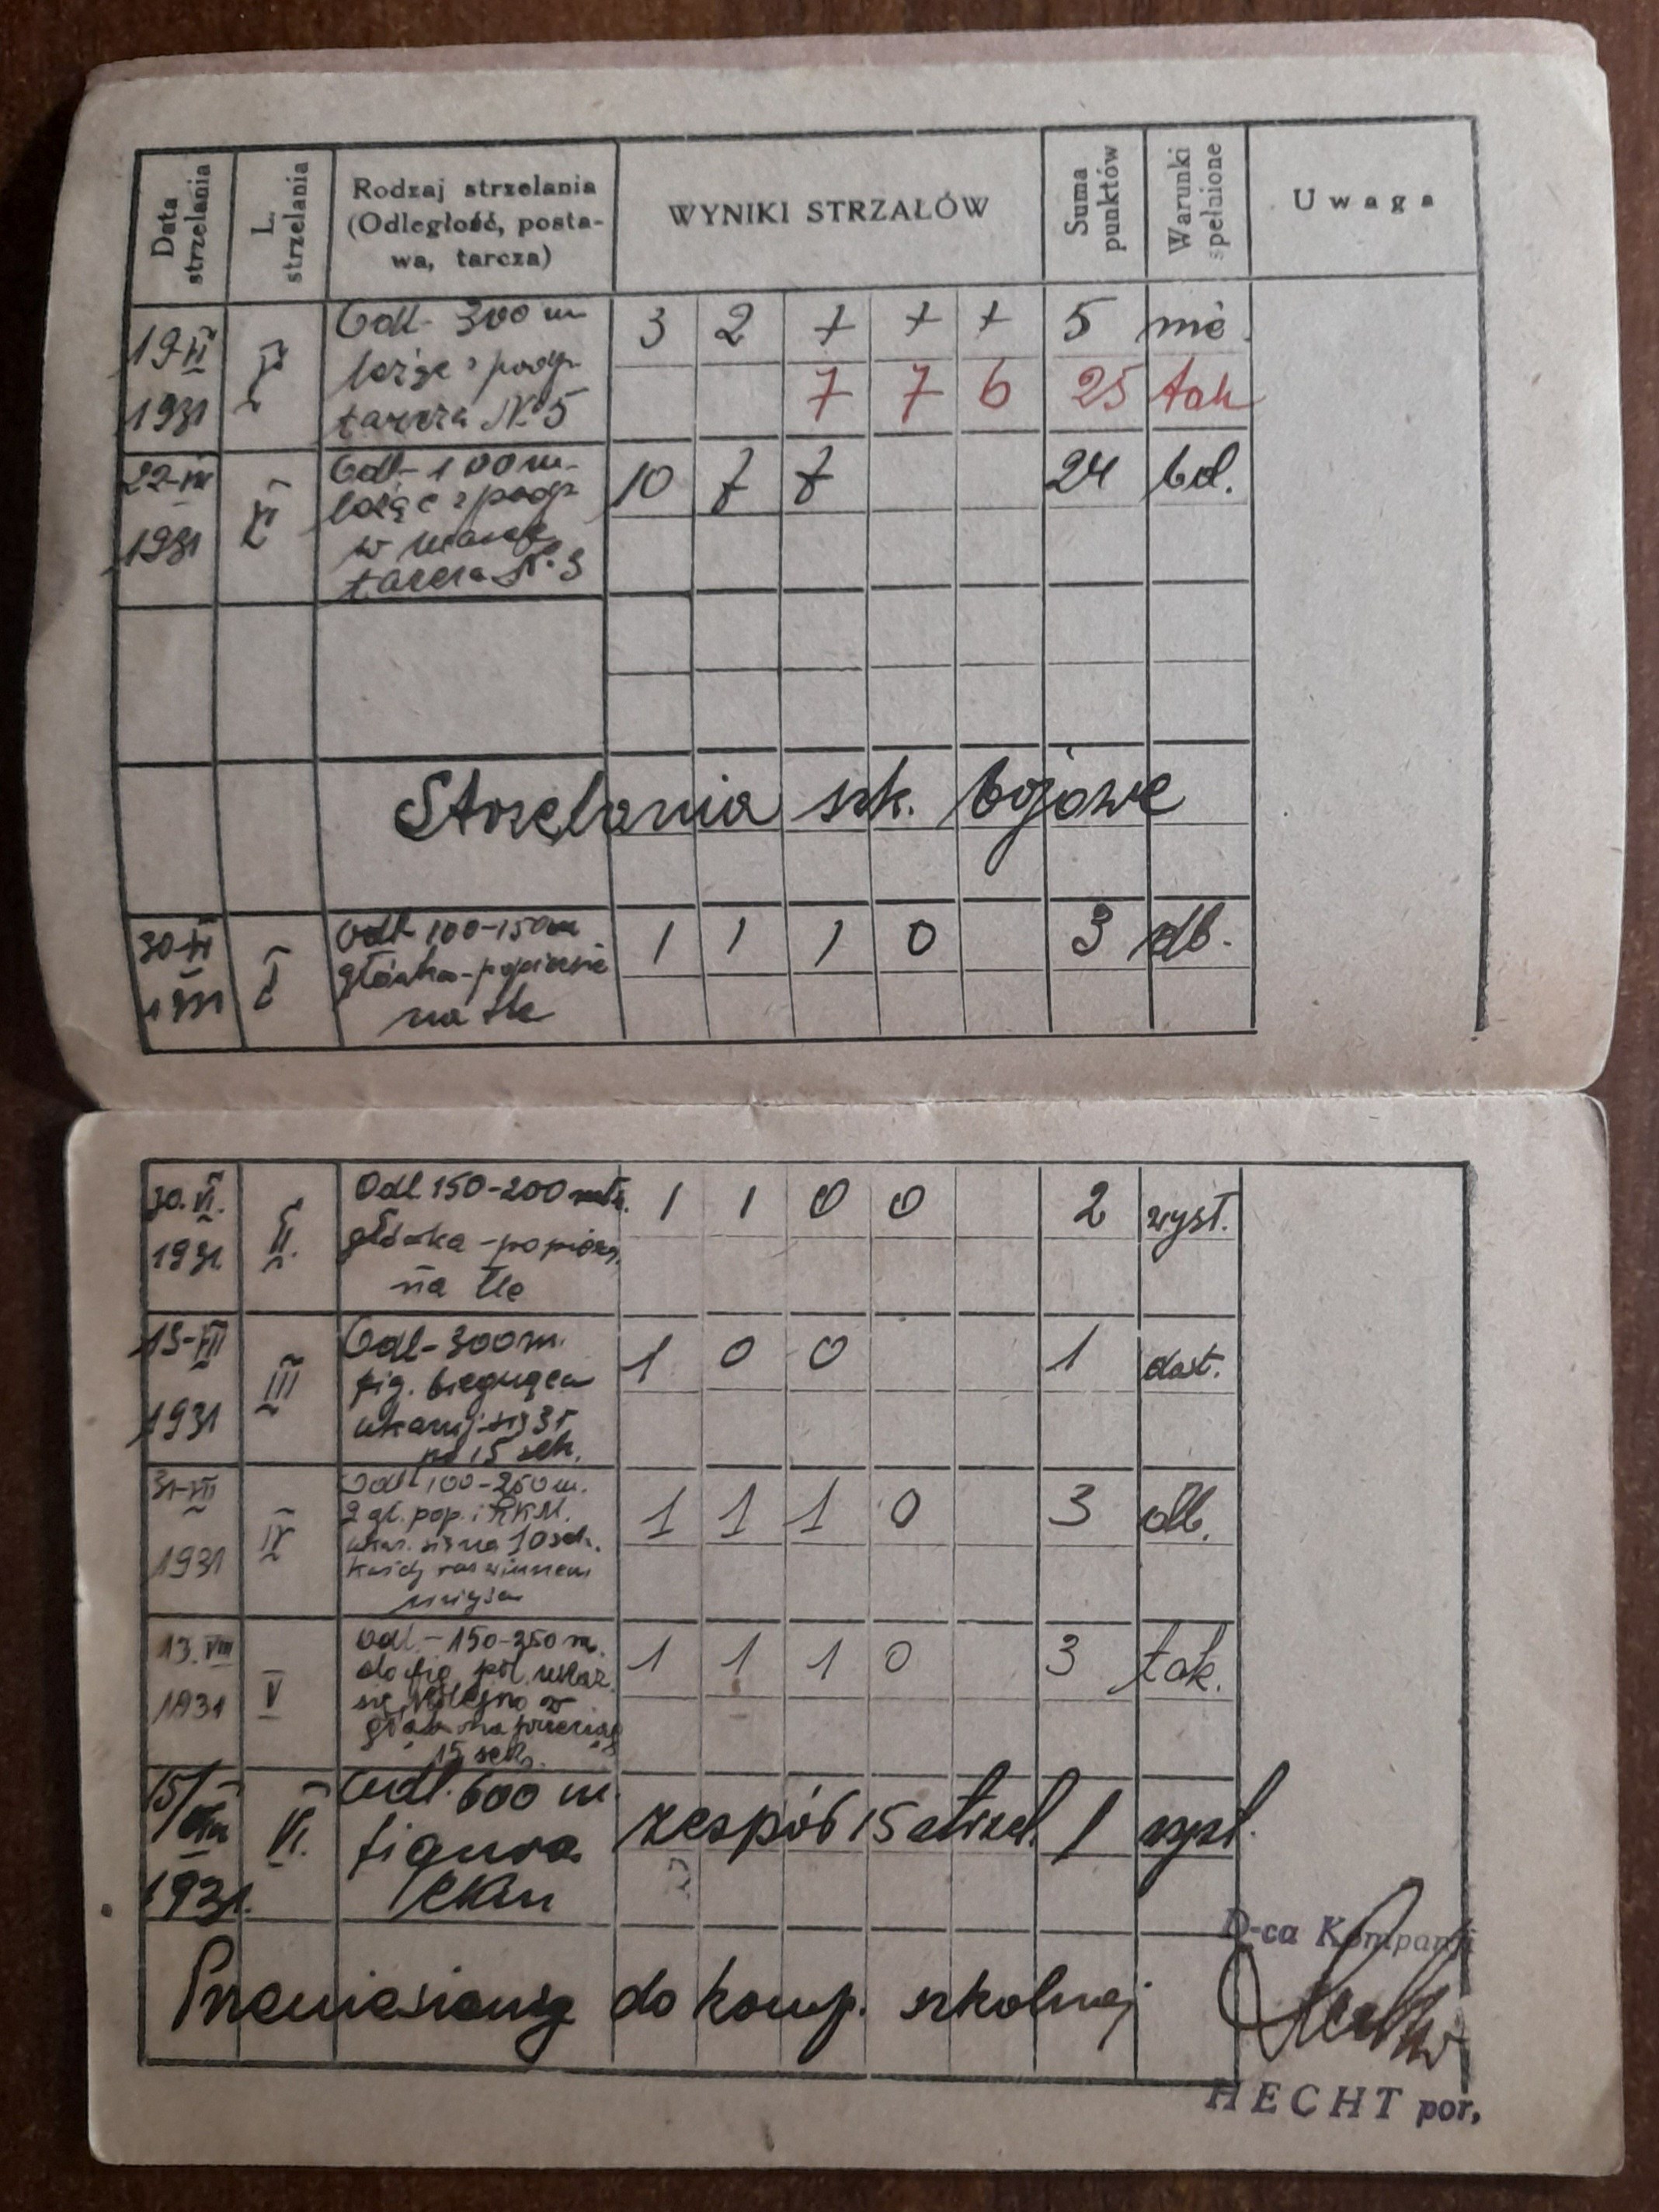 Data strzelania
L. strzelania
Rodzaj strzelania
(Odległość, posta-
wa, tarcza)
WYNIKI STRZAŁÓW
Suma punktów
Warunki spełnione
Uwaga
19-VI
1931
V
Odl- 300 m
leżąc z podp
tarcza № 5
3 2 + + + 5 nie
7 7 6 25 tak
22-VII
1931
VI
Odl- 100 m.
leżąc z podp
w masce
tarcza № 3
10 7 7 24 bd.
Strzelania szk. bojowe
30-VI
1931
I
Odl- 100-150m
główka-popiersie
na tle
1 1 1 0 3 db.
30.VI.
1931.
II.
Odl 150-200 mtr.
główka-popiers.
na tle
1 1 0 0 2 wyst.
13-VII
1931
III
Odl- 300 m.
fig. biegnąca
ukazuj. się 3 r.
po 15 sek.
1 0 0 1 dost.
31-VII
1931
IV
Odl 100-250 m.
2 gł. pop. i RKM.
ukaz. się na 10 sek.
każdy raz w innem
miejscu
1 1 1 0 3 db.
13.VIII
1931
V
Odl- 150-250 m.
do fig. pol. ukaz.
się kolejno w
15 sek.
1 1 1 0 3 tak.
15/VIII
1931.
VI.
Odl. 600 m.
figura
CKM
zespół 15 strzel. 1 wyst.
Przeniesiony do komp. szkolnej
D-ca Kompanji
HECHT por.